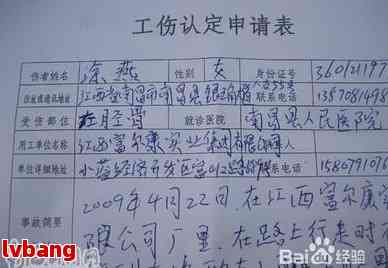 工伤认定申请表
伤者姓名 涂燕 性别 女 身份证号 360121197
住址或通讯地址 江西省南昌市南昌县 联系电话 1357081498
受伤部位 左胫骨 就诊医院 南昌县人民医院
用工单位名称 江西富尔康实业集团有限公司
单位详细地址 小蓝经济开发区富山 路 联系电话 158079101
事故简要 2009年4月22日,在江西富尔康实
限公司厂里,在路上行走时
lvbang
Bai 百度经验